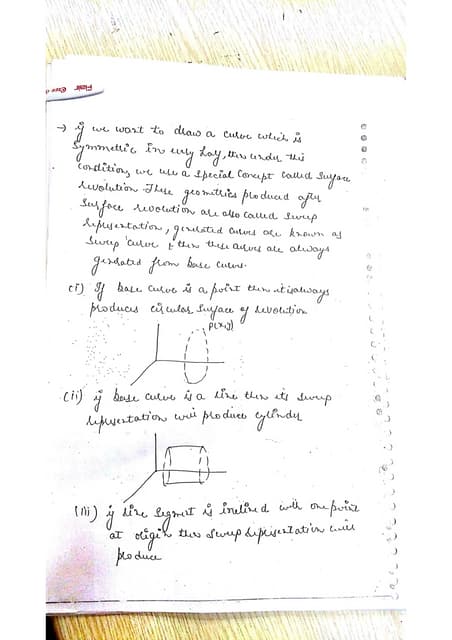 → if we want to draw a curve which is
symmetric in every way, then under this
conditions we use a special concept called surface
revolution. These geometries produced after
surface revolution are also called sweep
representation, generated curves are known as
sweep curve & then these curves are always
generated from base curve.
(i) If base curve is a point then it is always
produces circular surface of revolution
P(x,y)
(ii) if base curve is a line then its sweep
representation will produce cylinder
(iii) if line segment is inclined with one point
at origin then sweep representation will
produce